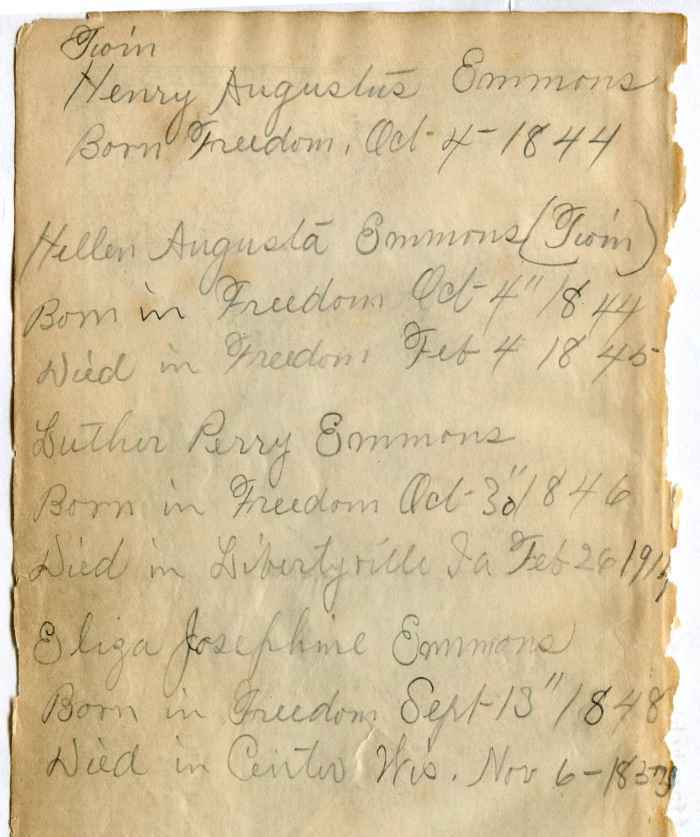 Twin
Henry Augustus Emmons
Born Freedom, Oct - 4 - 1844
Hellen Augusta Emmons (Twin)
Born in Freedom Oct - 4" 1844
Died in Freedom Feb 4 1845
Luther Perry Emmons
Born in Freedom Oct - 30" 1846
Died in Libertyville Ia Feb 26
Eliza Josephine Emmons
Born in Freedom Sept - 13" 1848
Died in Center Wis. Nov 6 -